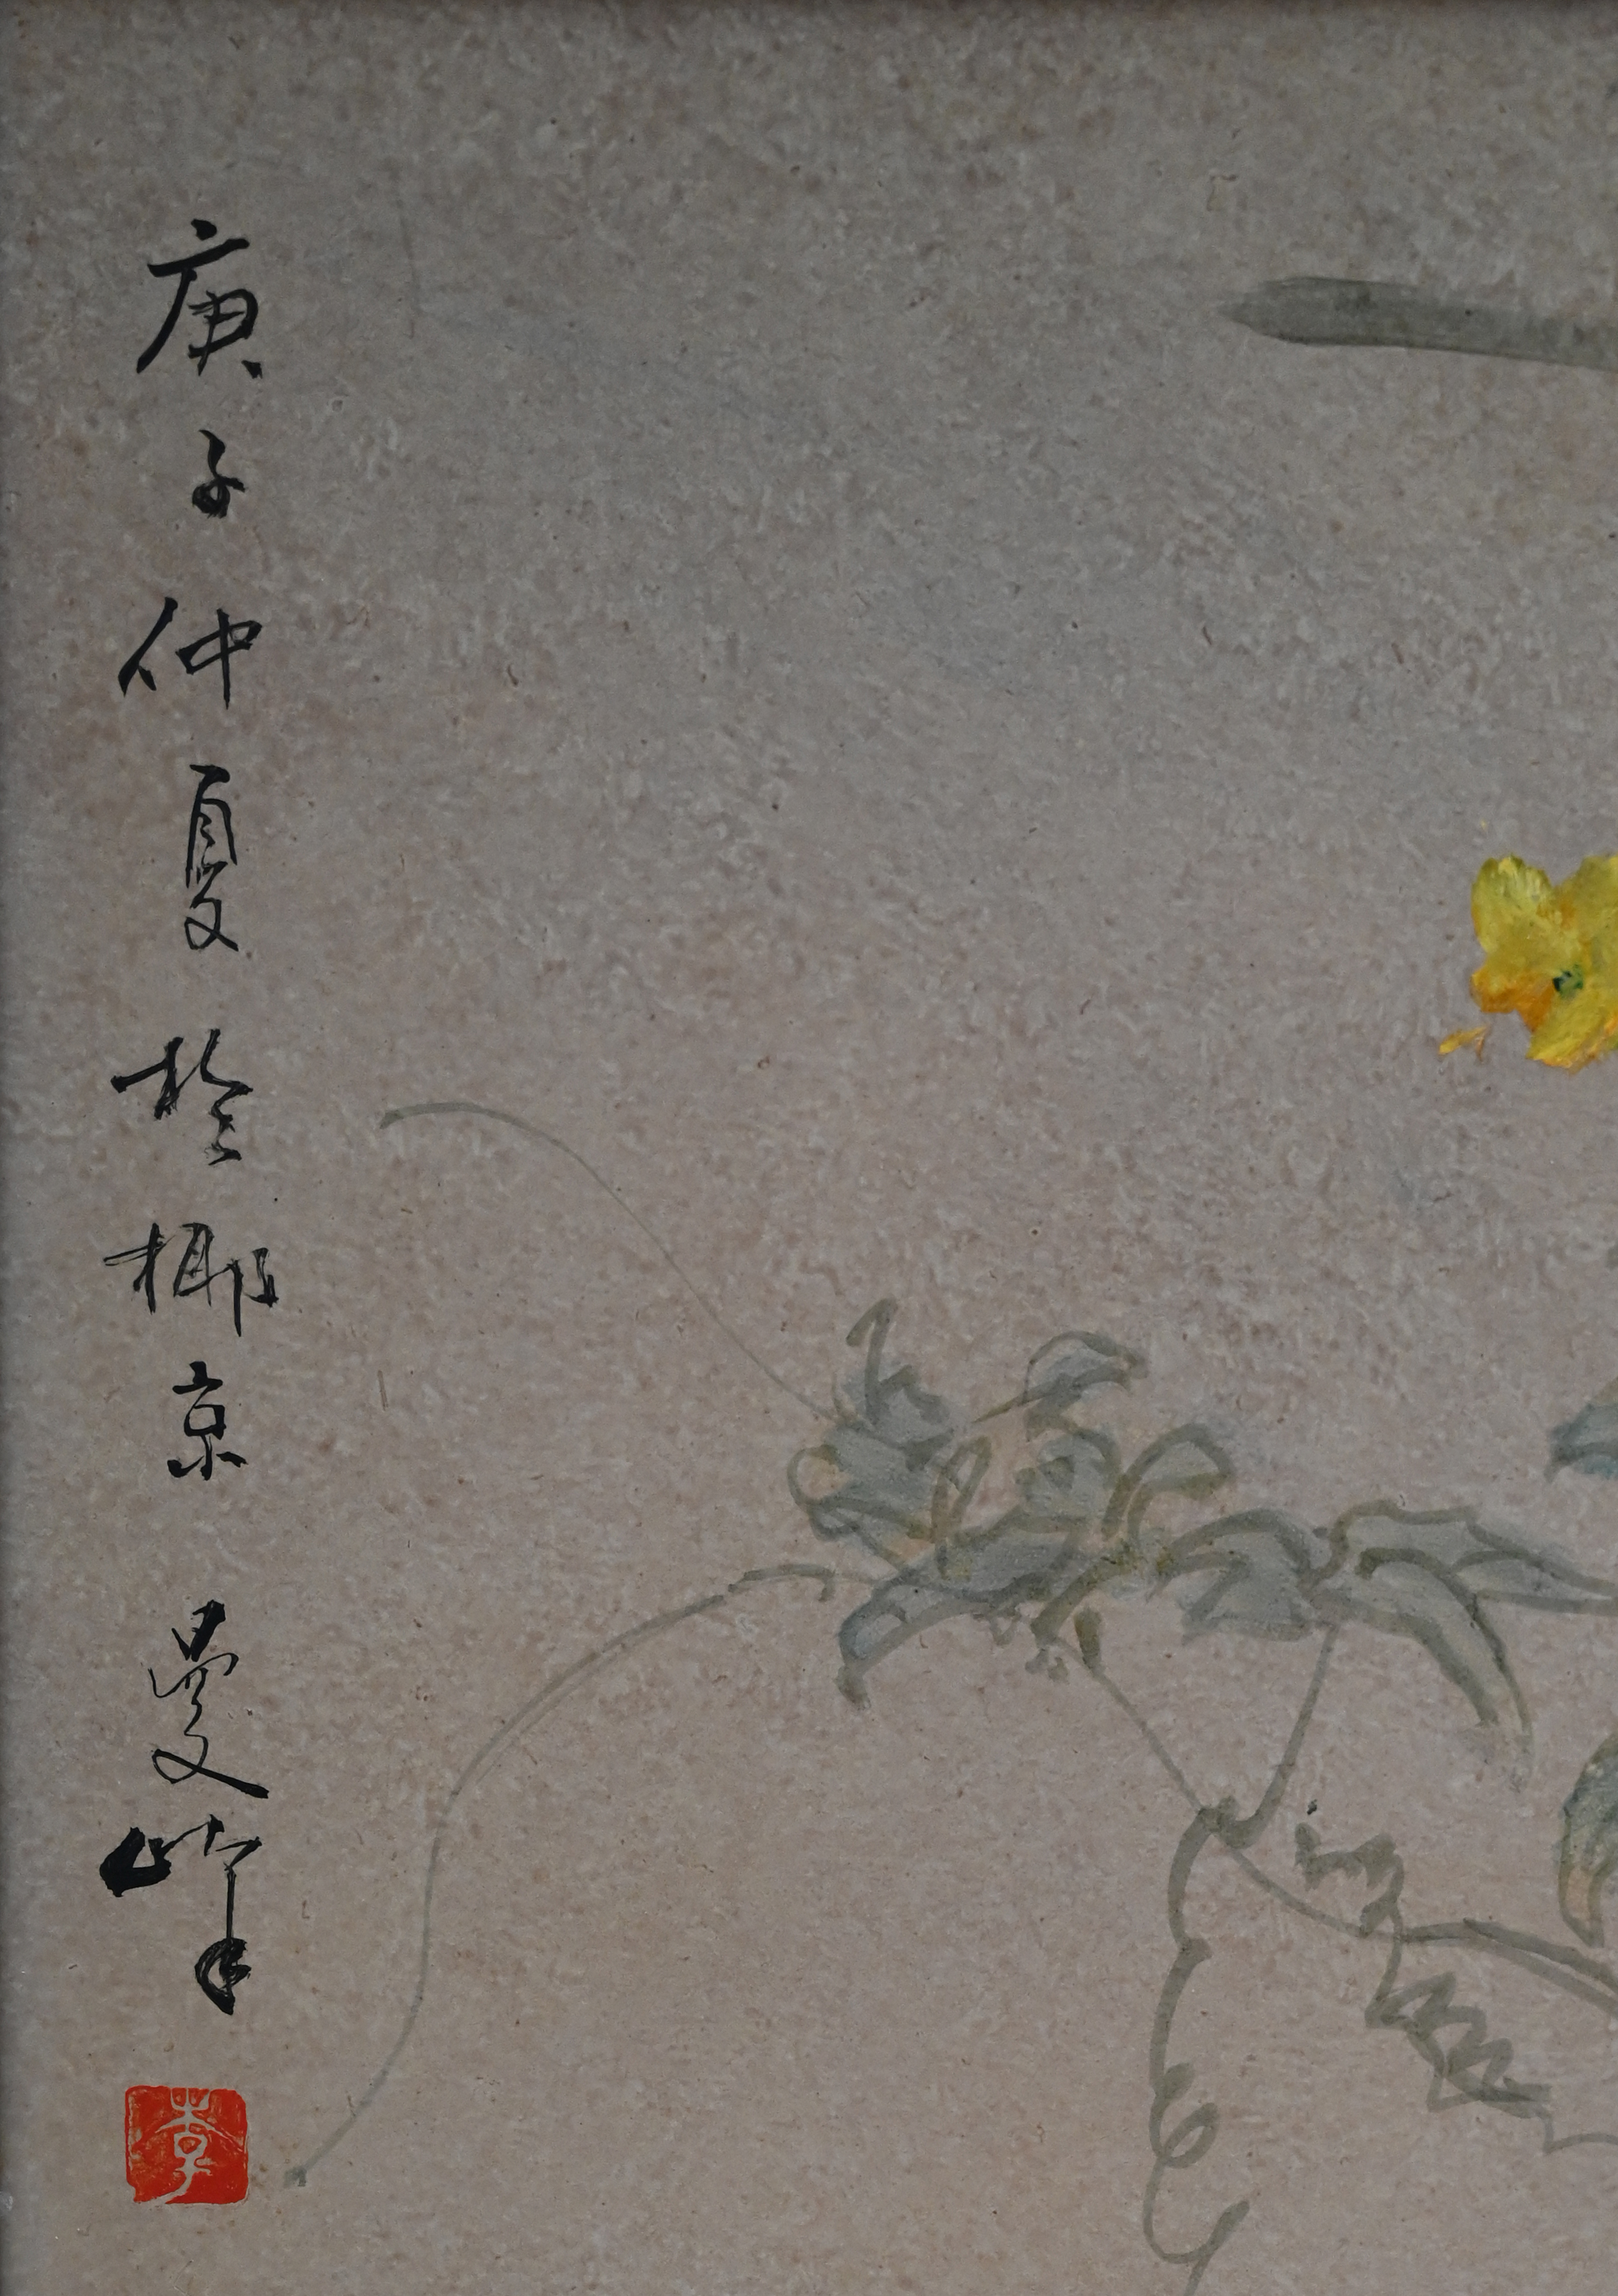 庚子仲夏於椰京 曼峰
李